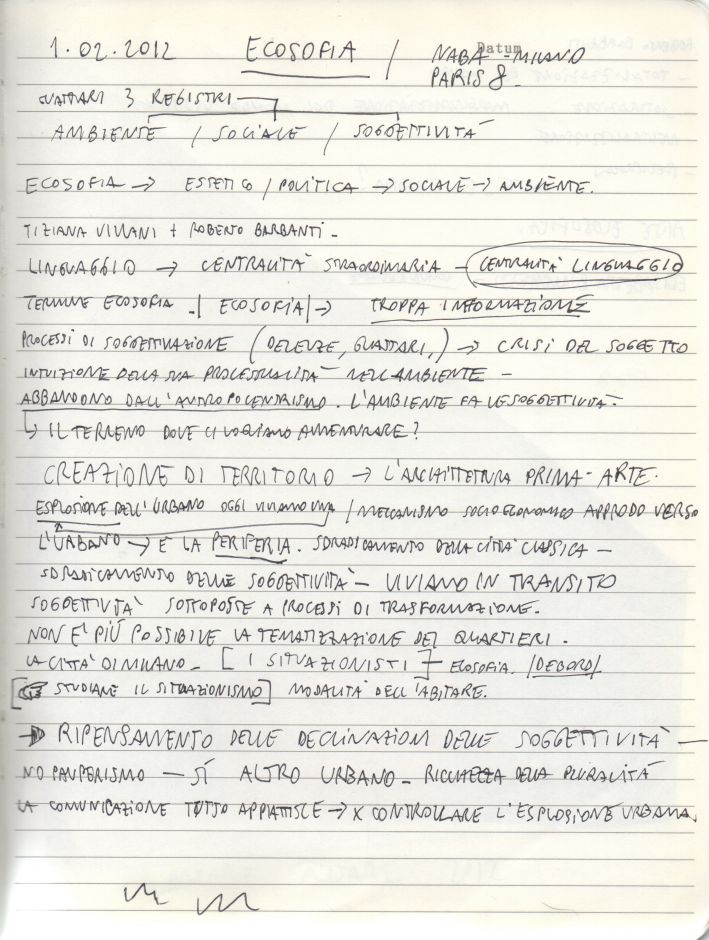 1.02.2012 ECOSOFIA / NABA - MILANO
Datum
PARIS 8
GUATTARI 3 REGISTRI
AMBIENTE / SOCIALE / SOGGETTIVITÀ
ECOSOFIA → ESTETICO / POLITICA → SOCIALE → AMBIENTE.
TIZIANA VILLANI + ROBERTO BARBANTI -
LINGUAGGIO → CENTRALITÀ STRAORDINARIA - CENTRALITÀ LINGUAGGIO
TERMINE ECOSOFIA. | ECOSOFIA | → TROPPA INFORMAZIONE
PROCESSI DI SOGGETTIVAZIONE (DELEUZE, GUATTARI,) → CRISI DEL SOGGETTO
INTUIZIONE DELLA SUA PROCESSUALITÀ NELL'AMBIENTE -
ABBANDONO DALL'ANTROPOCENTRISMO. L'AMBIENTE FA LE SOGGETTIVITÀ -
↳ IL TERRENO DOVE CI VOGLIAMO AVVENTURARE?
CREAZIONE DI TERRITORIO → L'ARCHITETTURA PRIMA - ARTE.
ESPLOSIONE DELL'URBANO OGGI VIVIAMO UNA / MECCANISMO SOCIOECONOMICO APPRODO VERSO
L'URBANO → E LA PERIFERIA. SDRADICAMENTO DELLA CITTÀ CLASSICA -
SDRADICAMENTO DELLE SOGGETTIVITÀ - VIVIANO IN TRANSITO
SOGGETTIVITÀ SOTTOPOSTE A PROCESSI DI TRASFORMAZIONE.
NON E' PIÚ POSSIBILE LA TEMATIZZAZIONE DEI QUARTIERI.
LA CITTÀ DI MILANO - [I SITUAZIONISTI] - ECOSOFIA. /DEBORD/
[☞ STUDIARE IL SITUAZIONISMO] MODALITÀ DELL'ABITARE.
→ RIPENSAMENTO DELLE DECLINAZIONI DELLE SOGGETTIVITÀ -
NO PAUPERISMO - SÍ ALTRO URBANO - RICCHEZZA DELLA PLURALITÀ
LA COMUNICAZIONE TUTTO APPIATTISCE → X CONTROLLARE L'ESPLOSIONE URBANA.